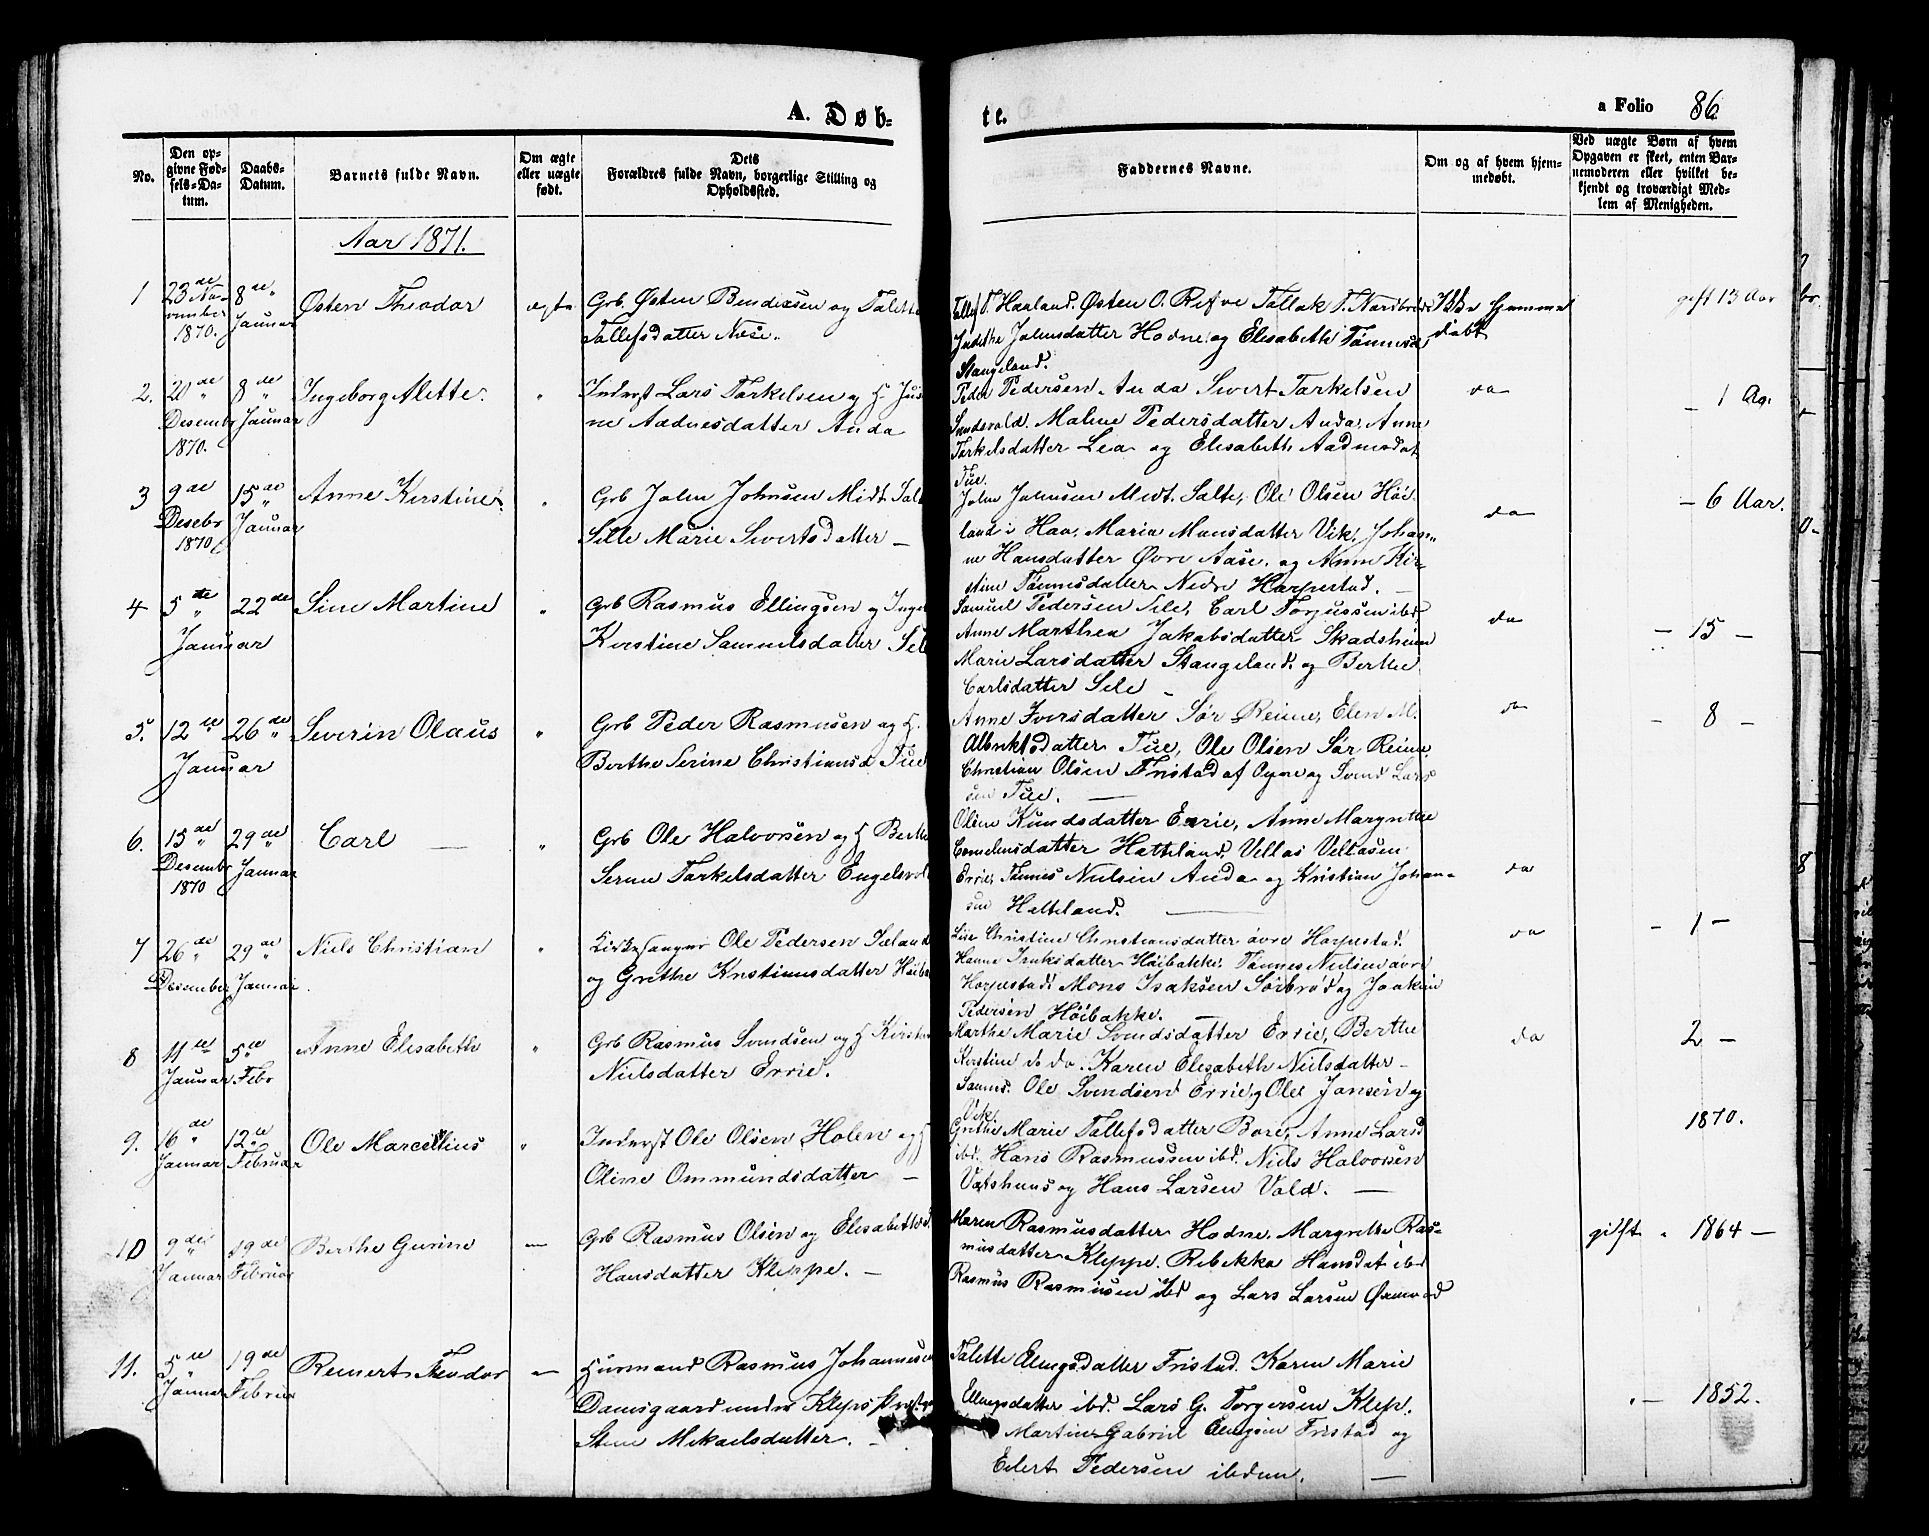 A. Døb-
te.
a Folio 86
No.
Den op-
givne Fød-
sels-Da-
tum.
Daabs-
Datum.
Barnets fulde Navn.
Om ægte
eller uægte
født.
Dets
Forældres fulde Navn, borgerlige Stilling og
Opholdssted.
Faddernes Navne.
Om og af hvem hjem-
medøbt.
Ved uægte Børn af hvem
Opgaven er skeet, enten Bar-
nemoderen eller hvilket be-
kjendt og troværdigt Med-
lem af Menigheden.
Aar 1871.
1
23de No-
vember
1870.
8de
Januar
Østen Theodor
ægte
Grb. Østen Bendixsen og Talette
Tallefsdatter Nose.
Tallef T. Haaland. Østen O. Refve Tallak T. Nordbrød
Judithe Johnsdatter Hodne og Elisabeth Tønnesd.
Stangeland.
Ikke hjemme
døbt
gift 13 Aar
2.
20de
Desembr
1870.
8de
Januar
Ingeborg Alette.
"
Inderst Lars Tarkelsen og H. Jus
ne Aadnesdatter Anda
Peder Pedersen Anda Sivert Tarkelsen
Sundsvold. Malene Pedersdatter Anda, Anne
Tarkelsdatter Lea og Elisabeth Aadnesdat
Tue.
do
- 1 Aa.
3
9de
Desebr
1870
15de
Januar
Anne Kirstine.
"
Grb John Johnsen Midt Salt
Sille Marie Sivertsdatter -
John Johnsen Midt. Salte, Ole Olsen Høi-
land i Haa, Maria Monsdatter Vik, Johan-
ne Hansdatter Øvre Aase. og Anne Kir-
stine Tønnesdatter Nedre Harpestad. -
do
- 6 Aar.
4
5de
Januar
22de
Sine Martine
"
Grb Rasmus Ellingsen og Inge
Kirstine Samuelsdatter Sel
Samuel Pedersen Sele, Carl Torjussen ibd,
Anne Marthea Jakobsdatter Skadsheim
Marie Larsdatter Stangeland. og Berthe
Carlsdatter Sele -
do
- 15 -
5.
12te
Januar
26de
Severin Olaus
"
Grb Peder Rasmusen og H.
Berthe Serine Christiansd. Tue
Anne Iversdatter Sør Reime, Elen M.
Albriktsdatter Tue, Ole Olsen Sør Reime
Christian Olsen Fristad af Ogne og Svend Lars
sen Tue. -
do
- 8 -
6.
15de
Desembr
1870
29de
Januar
Carl -
"
Grb Ole Halvorsen og H Berthe
Serine Tarkelsdatter Engelsvol
Oline Knudsdatter Errie, Anne Margrethe
Corneliusdatter Hatteland, Vellas Vellasen
Errie, Tønnes Nielsen Anda og Kristian Johan-
sen Hatteland. -
do
7
26de
Desember
29de
Januar.
Niels Christian
"
Kirkesanger Ole Pedersen Sæland
og Grethe Kristiansdatter Høiba
Lise Christine Christiansdatter øvre Harpestad.
Hanne Isaksdatter Høibakke. Tønnes Nielsen øvre
Harpestad. Mons Isaksen Sørbrød og Joakim
Pedersen Høibakke. -
do
- 1 -
8
11te
Januar
5te
Febr
Anne Elisabeth
"
Grb Rasmus Svendsen og H Kirstin
Nielsdatter Errie.
Marthe Marie Svendsdatter Errie, Berthe
Kirstine do do. Karen Elisabeth Nielsdatter -
Ole Svendsen Errie, Ole Jansen og
Vik.
do
2 -
9.
16de
Januar
12te
Februar
Ole Marcelius
"
Inderst Ole Olsen Holen og H
Oline Ommundsdatter -
Grethe Marie Tallefsdatter Bore, Anne Larsd
ibd. Hans Rasmussen ibd. Niels Halvorsen
Vatshuus og Hans Larsen Vold. -
1870.
10
9de
Januar
19de
Februar
Berthe Gurine
-
Grb Rasmus Olsen og Elisabethe
Hansdatter Kleppe. -
Maren Rasmusdatter Hodne, Margrethe Ras-
musdatter Kleppe. Rebekka Hansdat ibd
Rasmus Rasmusen ibd og Lars Larsen Øxnevad
gift " 1864 -
11.
5te
Januar
19de
Februar
Reinert Theodor
-
Huusmand Rasmus Johannesen
Damsgaard under Kleps Prest
Stine Mikaelsdatter. -
Talette Elingsdatter Fristad. Karen Marie
Ellingsdatter ibd. Lars G. Torgersen Klep.
Martin Gabriel Elingsen Fristad og
Eilert Pedersen ibdem. -
" - 1852.